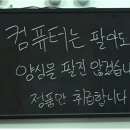 컴퓨터는 팔아도
양심을 팔진 않겠습니
정품만 취급합니다